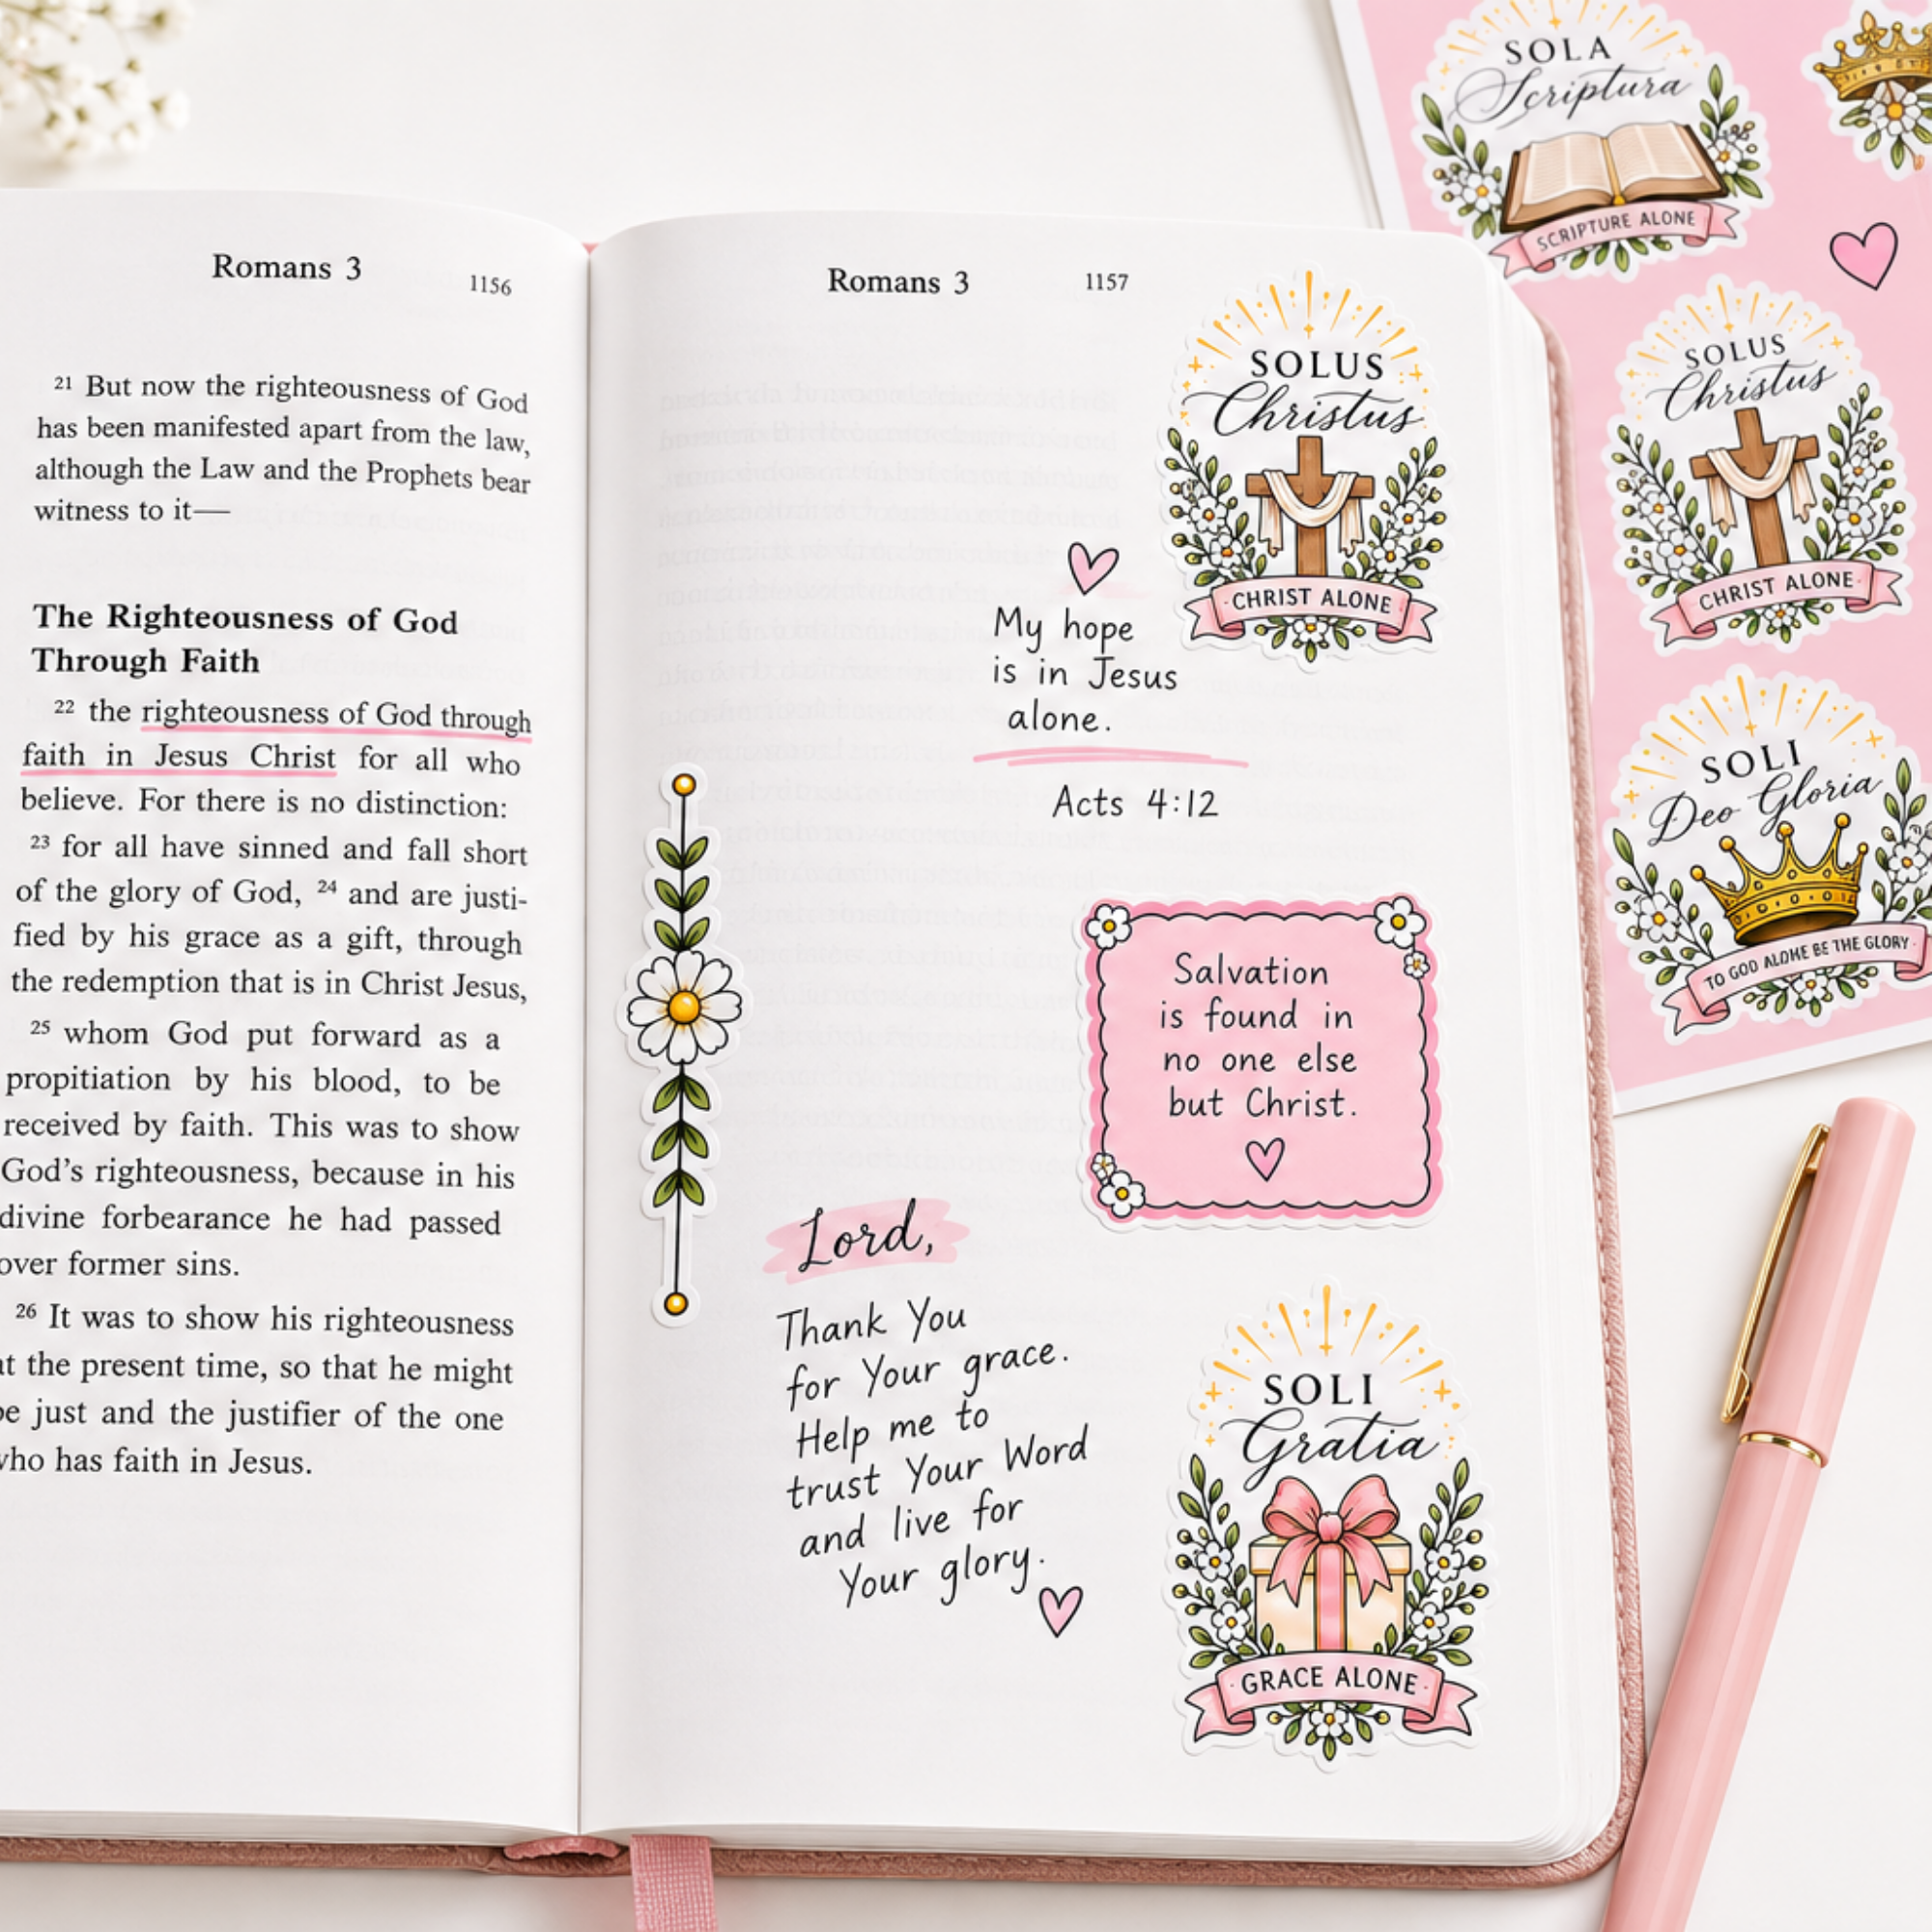 Romans 3
1156
21 But now the righteousness of God
has been manifested apart from the law,
although the Law and the Prophets bear
witness to it—
The Righteousness of God
Through Faith
22 the righteousness of God through
faith in Jesus Christ for all who
believe. For there is no distinction:
23 for all have sinned and fall short
of the glory of God, 24 and are justi-
fied by his grace as a gift, through
the redemption that is in Christ Jesus,
25 whom God put forward as a
propitiation by his blood, to be
received by faith. This was to show
God's righteousness, because in his
divine forbearance he had passed
over former sins.
26 It was to show his righteousness
at the present time, so that he might
be just and the justifier of the one
who has faith in Jesus.
Romans 3
1157
SOLUS
Christus
CHRIST ALONE
My hope
is in Jesus
alone.
Acts 4:12
Salvation
is found in
no one else
but Christ.
Lord,
Thank You
for Your grace.
Help me to
trust Your Word
and live for
Your glory.
SOLI
Gratia
GRACE ALONE
SOLA
Scriptura
SCRIPTURE ALONE
SOLUS
Christus
CHRIST ALONE
SOLI
Deo Gloria
TO GOD ALOHE BE THE GLORY